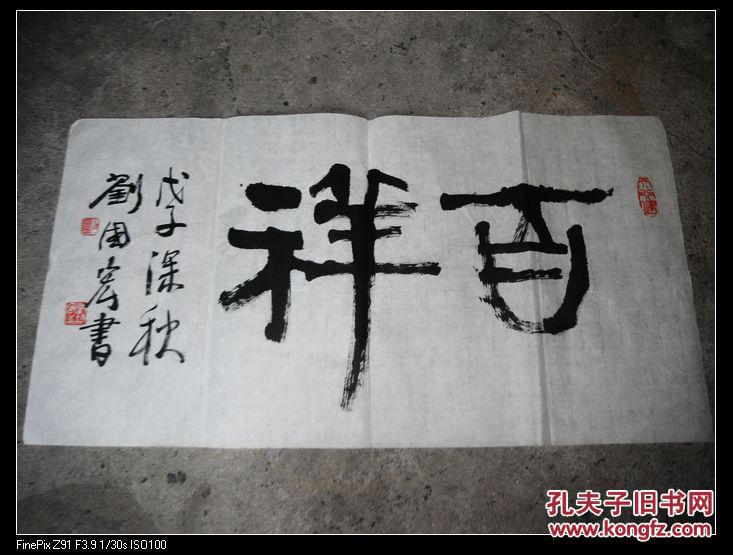 百祥
戊子深秋
劉國宏書
孔夫子旧书网
www.kongfz.com
FinePix Z91 F3.9 1/30s ISO100